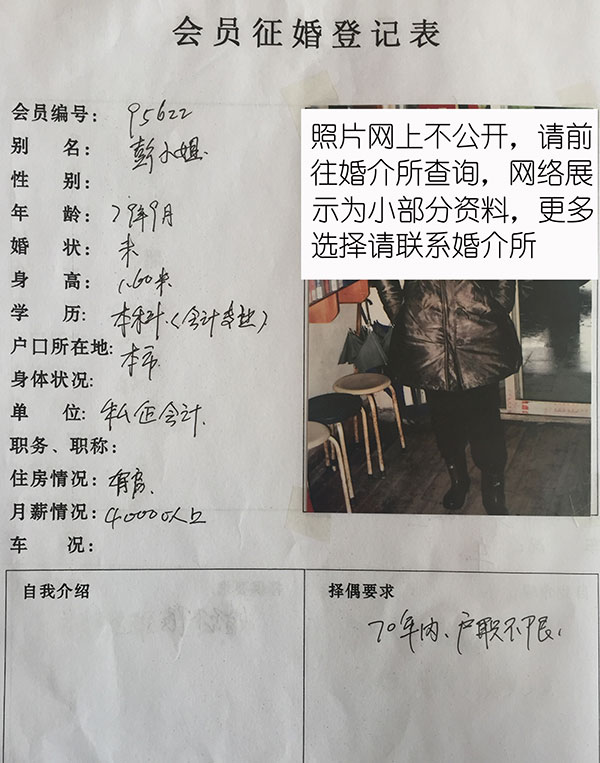 会员征婚登记表
会员编号: 95622
别 名: 彭小姐
性 别:
年 龄: 79年9月
婚 状: 未
身 高: 1.60米
学 历: 本科(会计专业)
户口所在地: 本市
身体状况:
单 位: 私企会计
职务、职称:
住房情况: 有房
月薪情况: 4000以上
车 况:
照片网上不公开，请前
往婚介所查询，网络展
示为小部分资料，更多
选择请联系婚介所
自我介绍
择偶要求
70年内、户职不限.